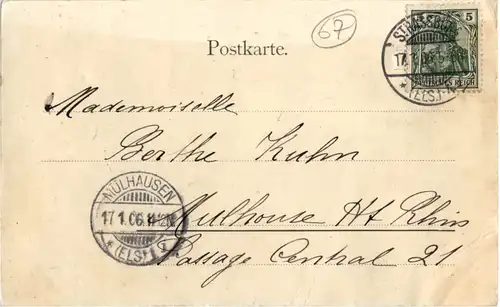 67
5
STRASSBURG
Postkarte.
17.1.06
* (ELS.)
DEUTSCHES REICH
Mademoiselle
Berthe Kuhn
MÜLHAUSEN
17.1.06.
* (ELS.)
Mulhouse Ht Rhin
Passage Central 21